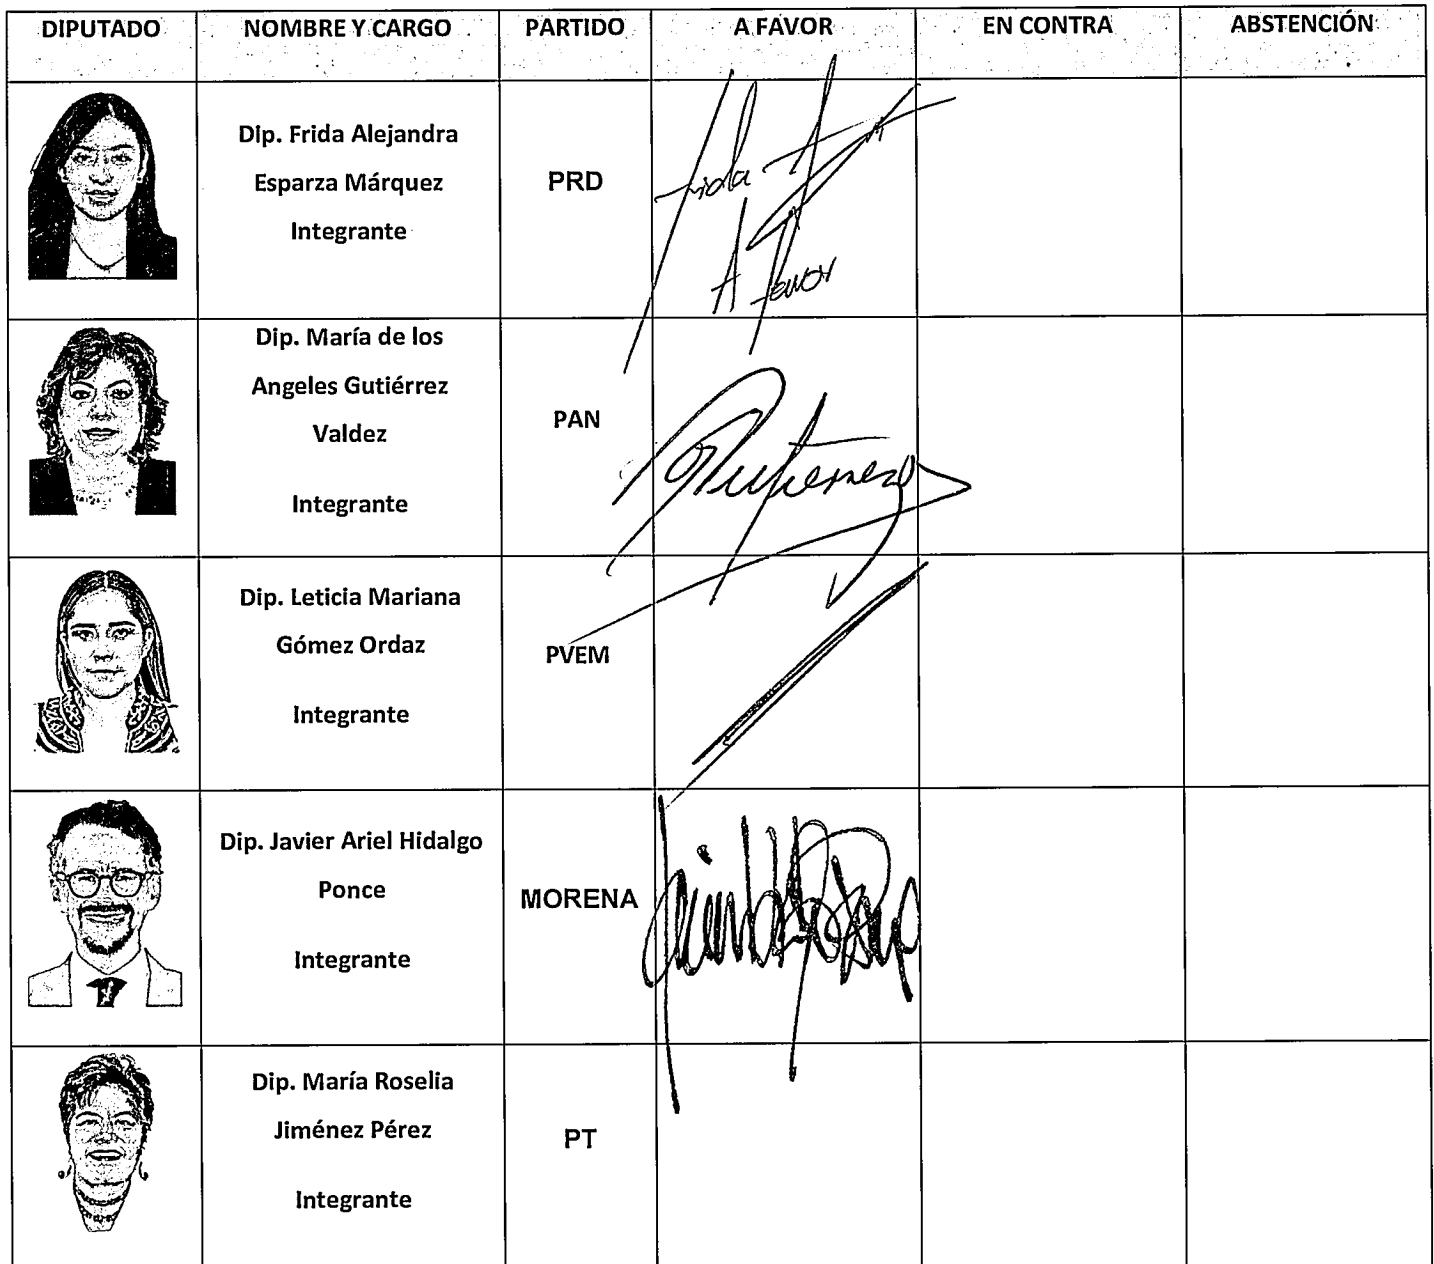 DIPUTADO NOMBRE Y CARGO PARTIDO A FAVOR EN CONTRA ABSTENCIÓN
Dip. Frida Alejandra
Esparza Márquez
Integrante
PRD
Frida
A favor
Dip. María de los
Angeles Gutiérrez
Valdez
Integrante
PAN
Gutierrez
Dip. Leticia Mariana
Gómez Ordaz
Integrante
PVEM
Dip. Javier Ariel Hidalgo
Ponce
Integrante
MORENA
Dip. María Roselia
Jiménez Pérez
Integrante
PT